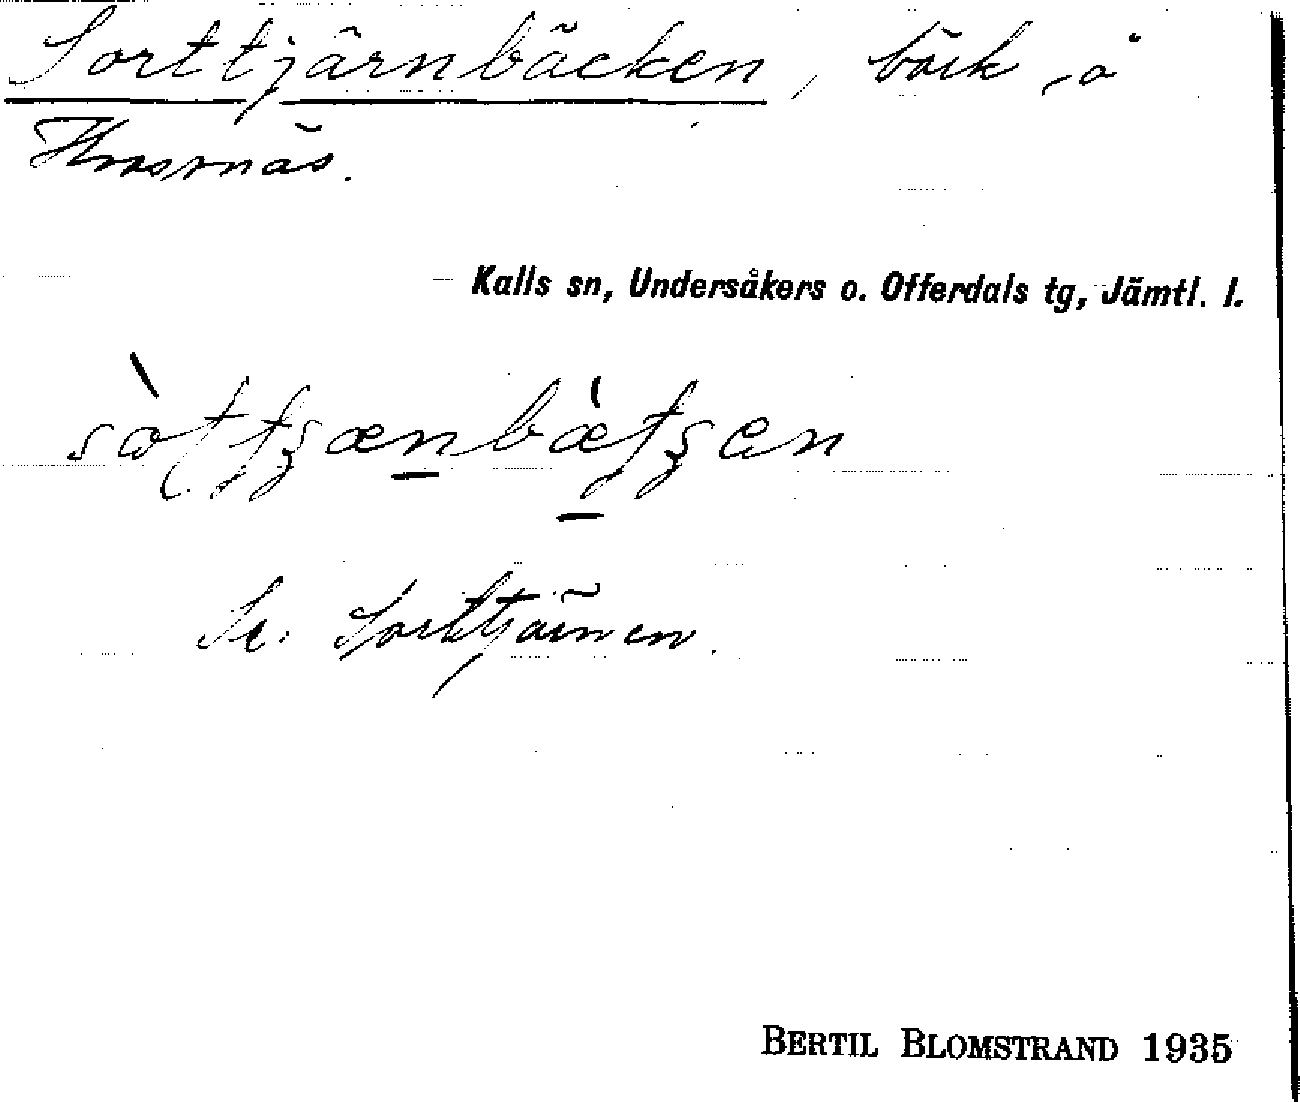 Sorttjärnbäcken, bäck, å
Kalls sn, Undersåkers o. Offerdals tg, Jämtl. l.
Se: Sorttjärnen.
BERTIL BLOMSTRAND 1935